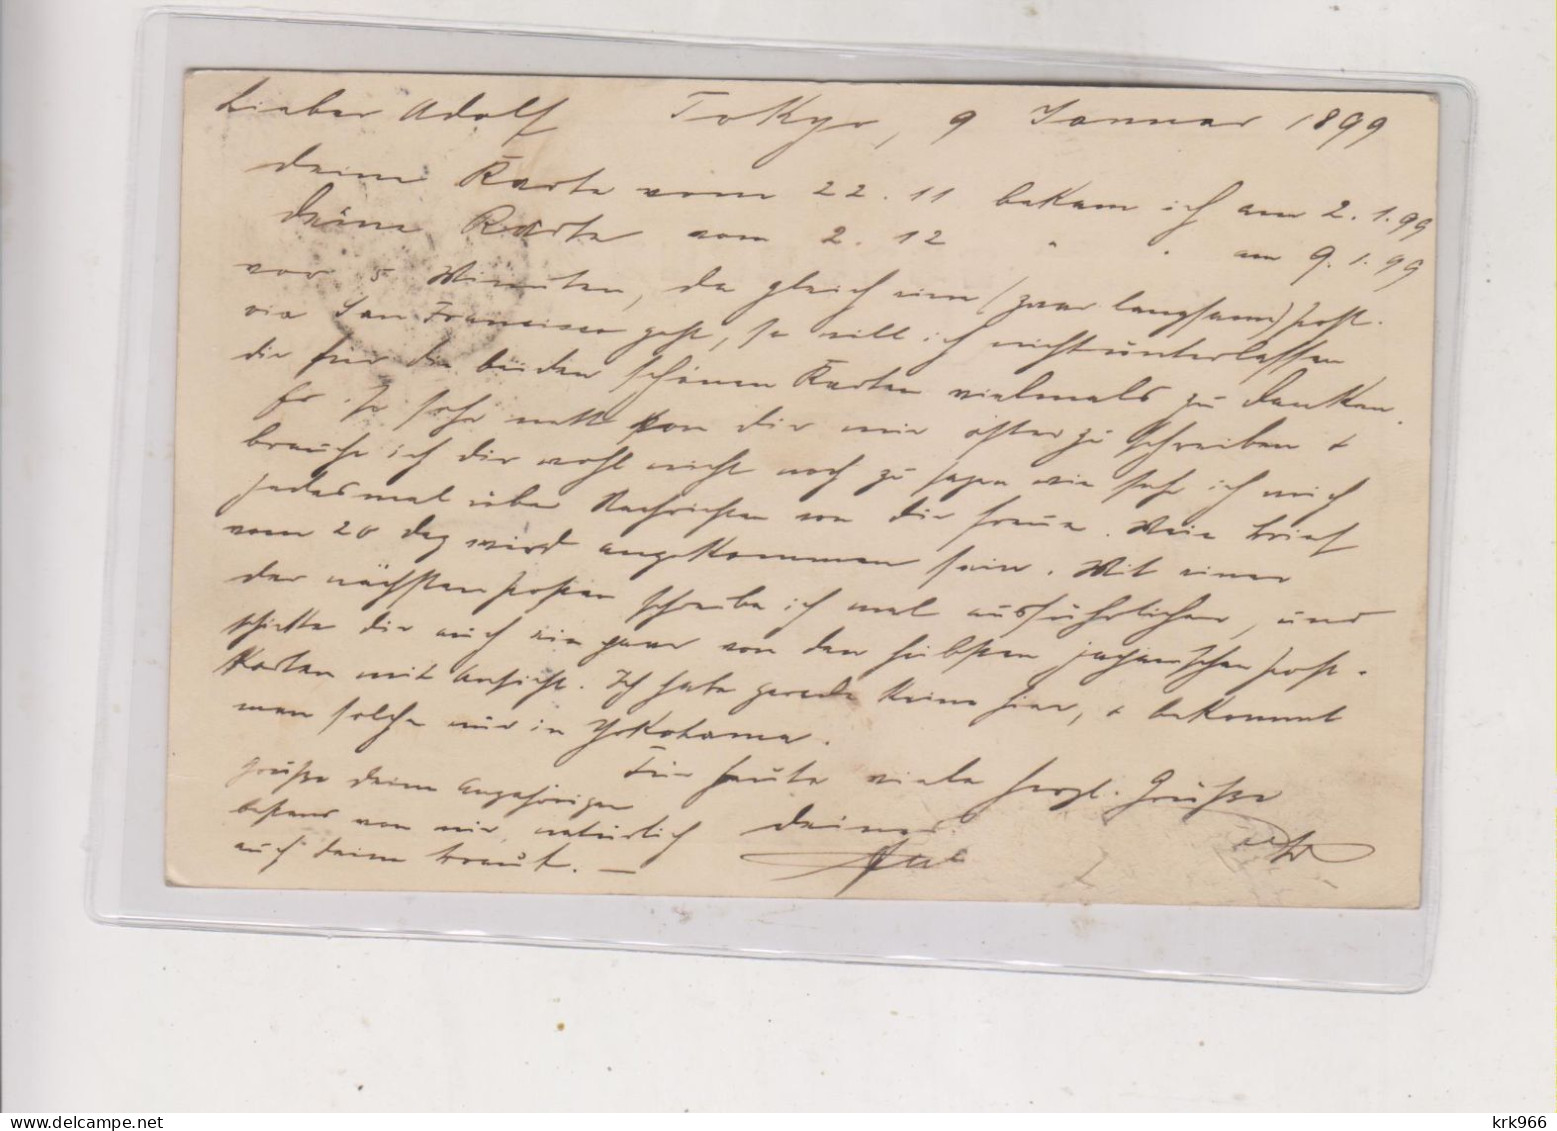 Lieber Adolf Tokyo, 9 Januar 1899
deine Karte vom 22.11 bekam ich am 2.1.99
deine Karte vom 2.12 " " am 9.1.99
vor 5 Minuten, da gleich eine (zwar langsame) Post.
via San Francisco geht, so will ich nicht unterlassen
dir für die beiden schönen Karten vielmals zu danken.
Es ist sehr nett von dir mir öfter zu schreiben &
brauche ich dir wohl nicht noch zu sagen wie sehr ich mich
jedesmal über Nachrichten von dir freue. Mein Brief
vom 20 Dez wird angekommen sein. Mit einer
der nächsten Posten schreibe ich mal ausführlicher, und
schicke dir auch ein paar von den hübschen japanischen Post-
Karten mit Ansicht. Ich habe gerade keine hier, & bekommt
man solche nur in Yokohama.
Für heute viele herzl. Grüsse
deiner
Grüsse deine Angehörigen
bestens von mir, natürlich
auch deine Braut. —
krk966